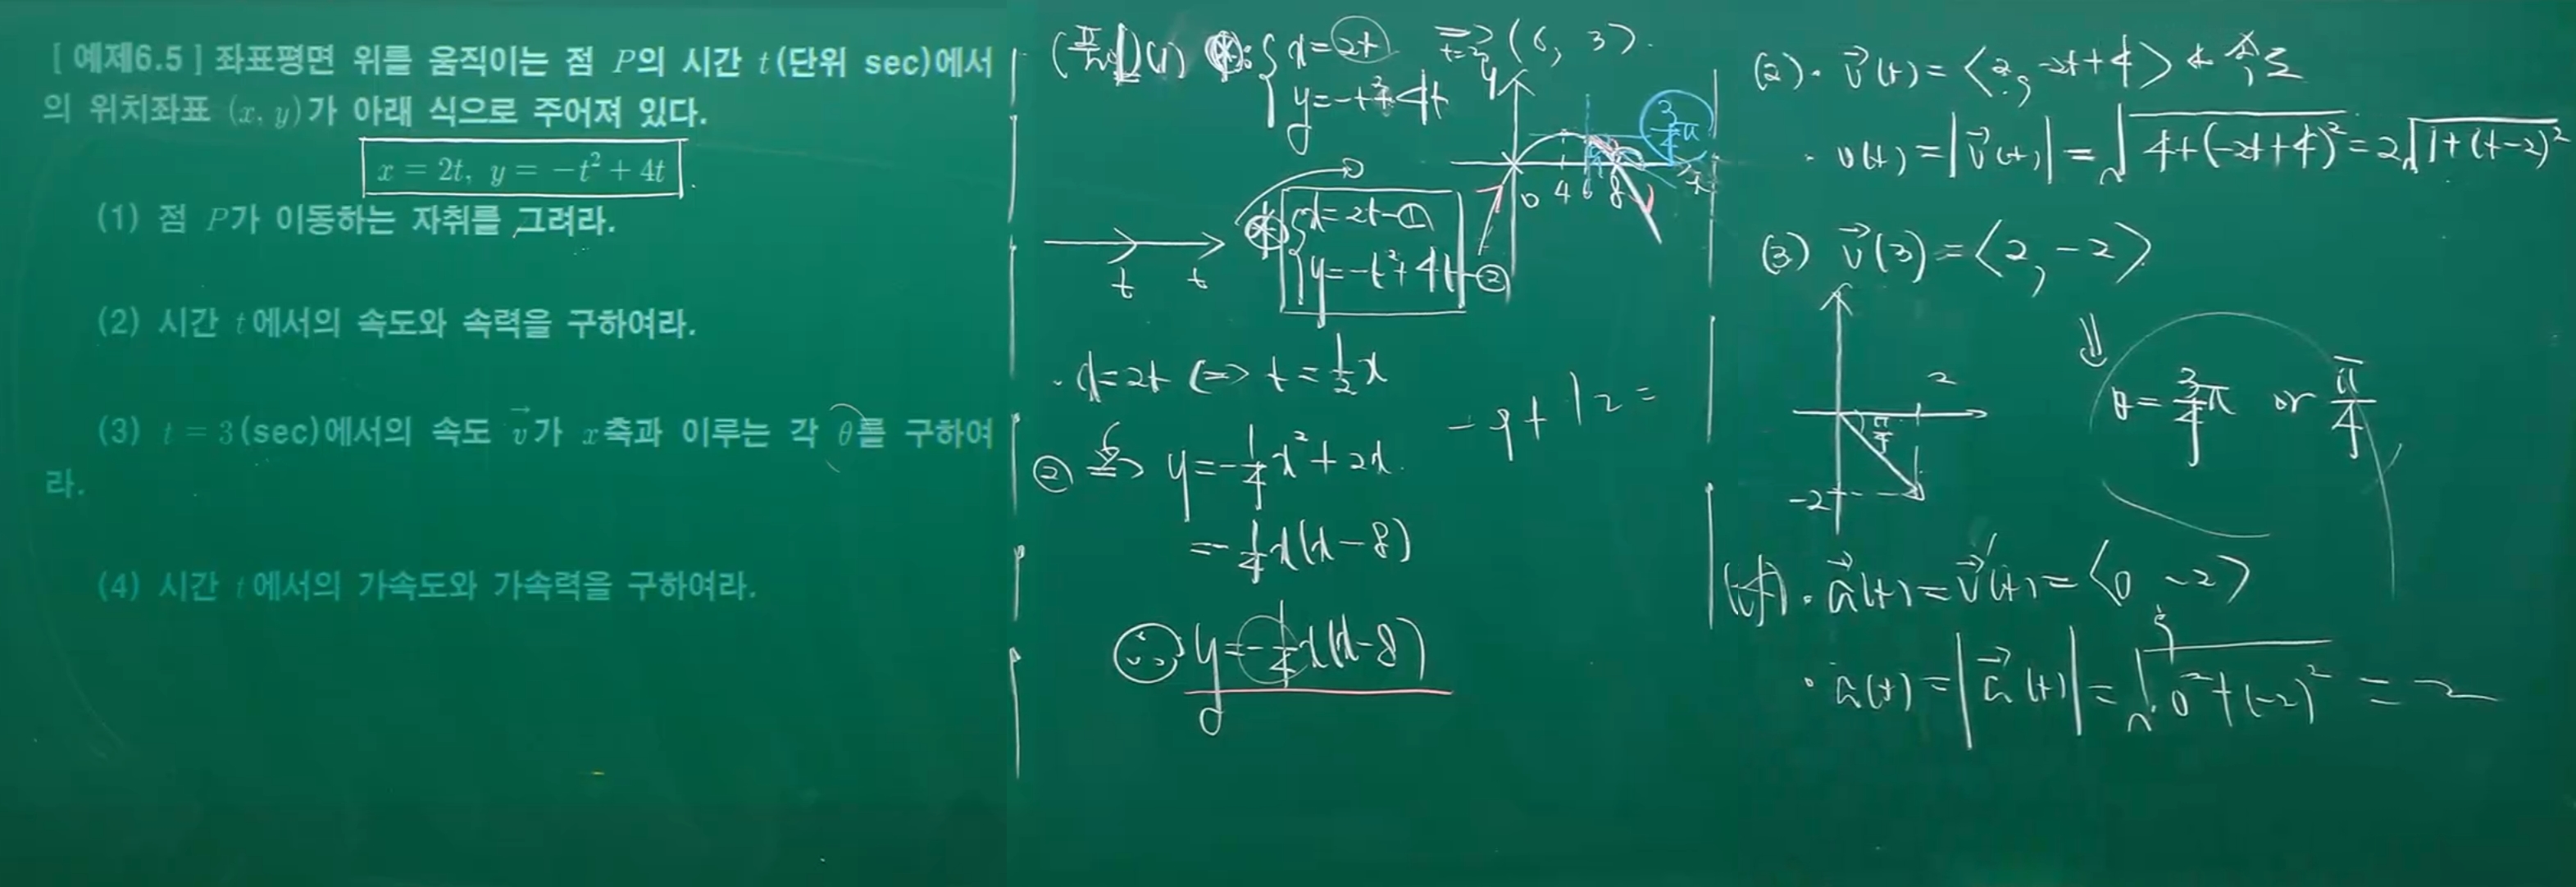 [ 예제6.5 ] 좌표평면 위를 움직이는 점 P의 시간 t(단위 sec)에서
의 위치좌표 (x, y)가 아래 식으로 주어져 있다.
x = 2t, y = −t² + 4t
(1) 점 P가 이동하는 자취를 그려라.
(2) 시간 t에서의 속도와 속력을 구하여라.
(3) t = 3(sec)에서의 속도 v⃗가 x축과 이루는 각 θ를 구하여
라.
(4) 시간 t에서의 가속도와 가속력을 구하여라.
(풀이) (1) ⊛: { x=2t ⇒ t=3 (6, 3).
y=-t²+4t
y
3/4 π
0 4 6 8 x
⊛ { x=2t-①
y=-t²+4t-②
t t
· x=2t <=> t=1/2 x
② => y=-1/4 x²+2x.
-9+12=
=-1/4 x(x-8)
y=-1/4 x(x-8)
(2). v⃗(t)=<2, -2t+4>
· v(t)=|v⃗(t)|=√(4+(-2t+4)²)=2√(1+(t-2)²)
(3) v⃗(3)=<2, -2>
2
π/4
-2
θ=3/4 π or π/4
(4). a⃗(t)=v⃗'(t)=<0, -2>
· a(t)=|a⃗(t)|=√(0²+(-2)²)=2